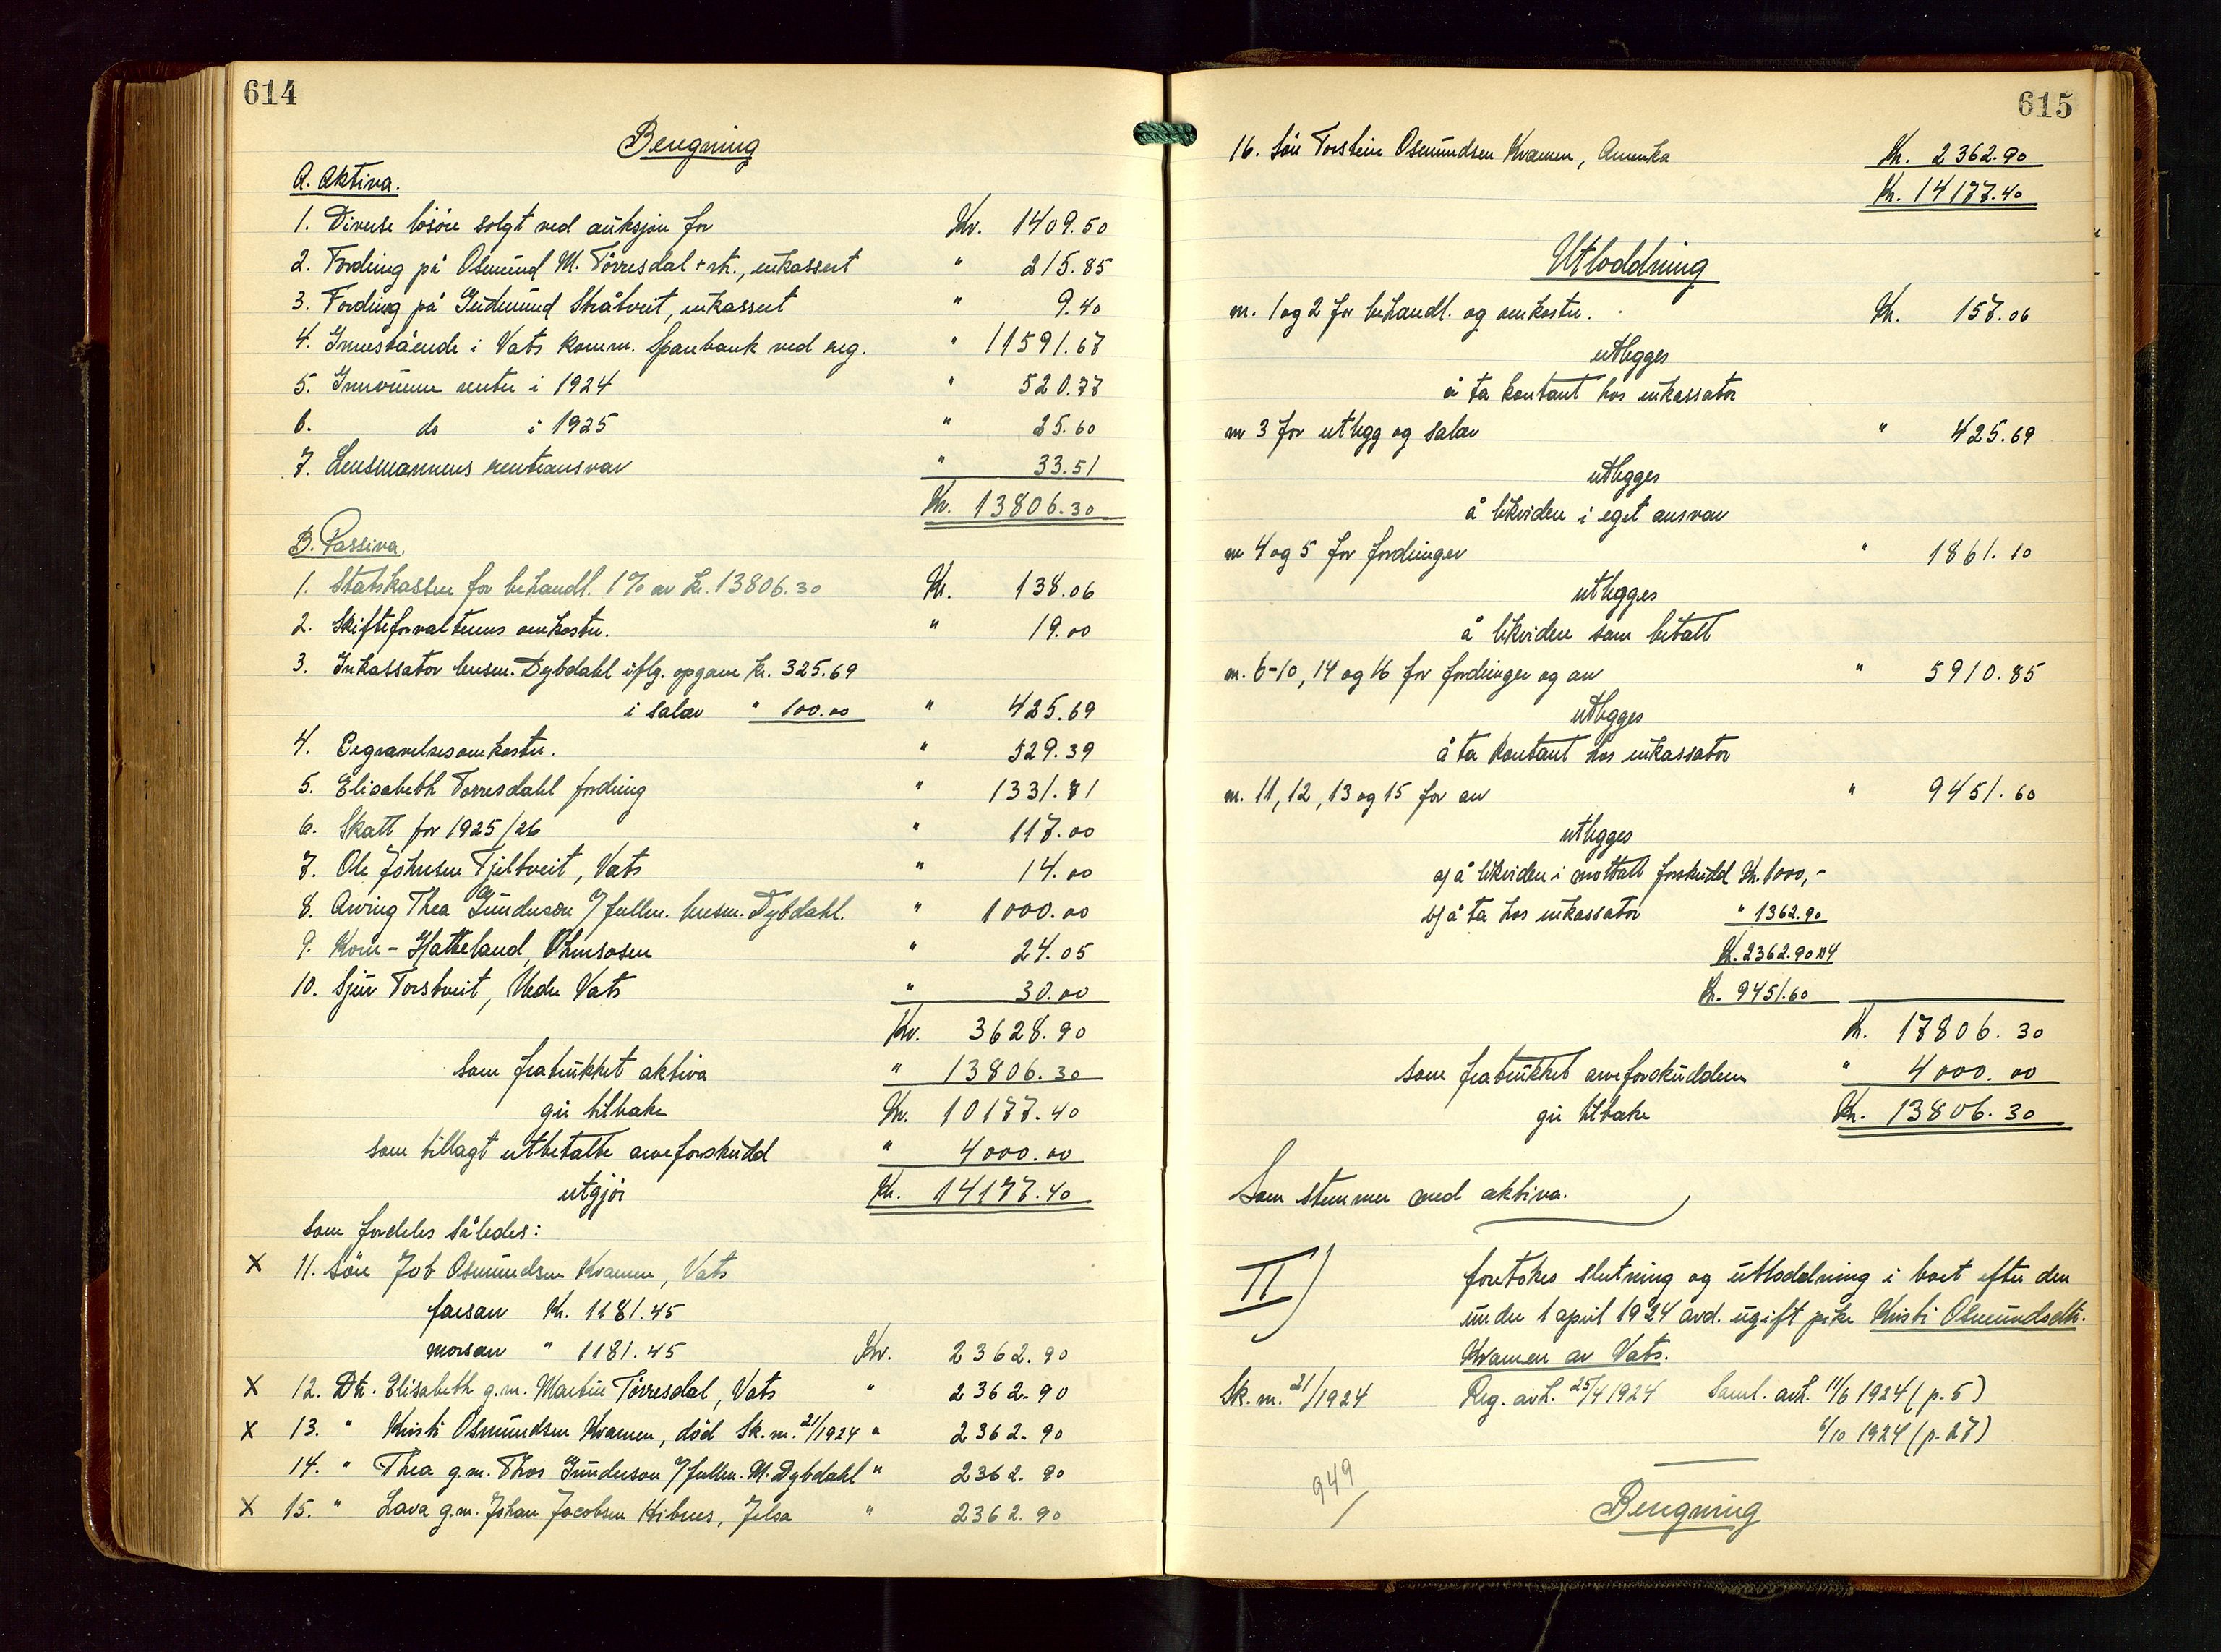 614
Beregning
A. Aktiva.
1. Diverse lösöre solgt ved auksjon for Kr. 1409.50
2. Fordring på Osmund M. Törresdal + rtr., inkassert " 215.85
3. Fordring på Gudmund Skåtveit, inkassert " 9.40
4. Innestående i Vats komm. Sparebank ved reg. " 11591.67
5. Innvunne renter i 1924 " 520.77
6. do i 1925 " 25.60
7. Lensmannens renteansvar " 33.51
Kr. 13806.30
B. Passiva.
1. Statskassen for behandl. 1% av kr. 13806.30 Kr. 138.06
2. Skifteforvalterens omkostn. " 19.00
3. Inkassator lensm. Dybdahl iflg. opgave kr. 325.69
i salær " 100.00 " 425.69
4. Begravelsesomkostn. " 529.39
5. Elisabeth Torresdahl fordring " 1331.71
6. Skatt for 1925/26 " 117.00
7. Ole Johnsen Tjeltveit, Vats " 14.00
8. Arving Thea Gunderson v/ fullm. lensm. Dybdahl. " 1000.00
9. Korn- Hatteland, Ølensosen " 24.05
10. Sjur Torstveit, Nedre Vats " 30.00
Kr. 3628.90
som fratrukket aktiva " 13806.30
gir tilbake Kr. 10177.40
som tillagt utbetalte arveforskudd " 4000.00
utgjör Kr. 14177.40
som fordeles således:
x 11. Sön Job Osmundsen Kvamen, Vats
farsarv Kr. 1181.45
morsarv " 1181.45 Kr. 2362.90
x 12. Dtr. Elisabeth g.m. Martin Törresdal, Vats " 2362.90
x 13. " Kristi Osmundsen Kvamen, död Sk.nr. 21/1924 " 2362.90
14. " Thea g.m. Thos Gunderson v/ fullm. M. Dybdahl " 2362.90
x 15. " Lava g.m. Johan Jacobsen Hibnes, Jelsa " 2362.90
615
16. Sön Torstein Osmundsen Kvamen, Amerika Kr. 2362.90
Kr. 14177.40
Utloddning
nr. 1 og 2 for behandl. og omkostn. Kr. 157.06
utlegges
å ta kontant hos inkassator
nr 3 for utlegg og salær " 425.69
utlegges
å likvidere i eget ansvar
nr 4 og 5 for fordringer " 1861.10
utlegges
å likvidere som betalt
nr. 6-10, 14 og 16 for fordringer og arv " 5910.85
utlegges
å ta kontant hos inkassator
nr. 11, 12, 13 og 15 for arv " 9451.60
utlegges
a) å likvidere i mottatt forskudd Kr. 1000,-
b) å ta hos inkassator " 1362.90
Kr. 2362.90 x 4
Kr. 9451.60
Kr. 17806.30
som fratrukket arveforskuddene " 4000.00
gir tilbake Kr. 13806.30
Som stemmer med aktiva.
II) foretokes slutning og utloddning i boet efter den
under 1 april 1924 avd. ugift pike Kristi Osmundsdtr.
Kvamen av Vats.
Sk.nr. 21/1924 Reg. avh. 25/4 1924 Saml. avh. 11/6 1924 (p. 5)
6/10 1924 (p. 27)
949/
Beregning